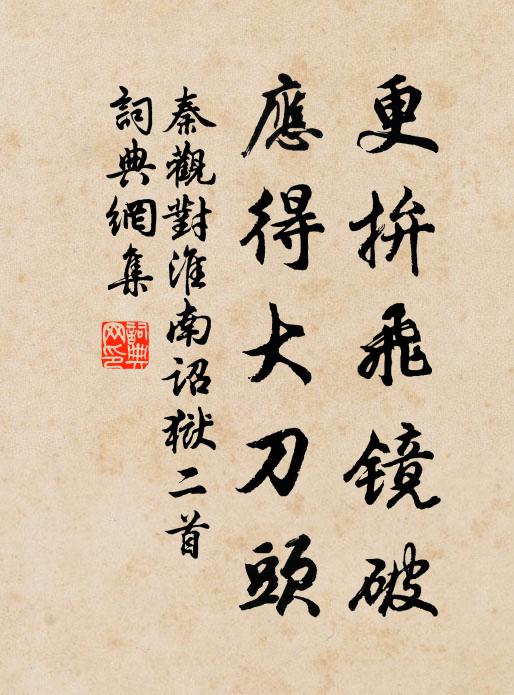 更拚飛镜破
應得大刀頭
秦觀對淮南詔獄二首
詞典網集
詞典网印